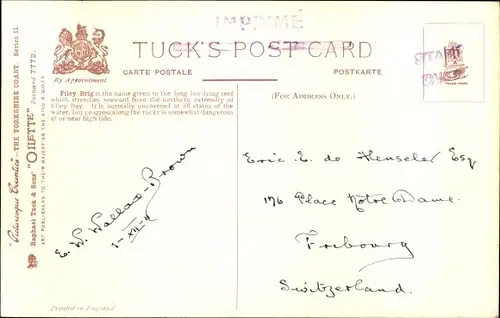 IMPRIMÉ
TUCK'S POST CARD
CARTE POSTALE
POSTKARTE
By Appointment
(FOR ADDRESS ONLY.)
Filey Brig is the name given to the long low-lying reef
which stretches seaward from the northern extremity of
Filey Bay. It is normally uncovered at all states of the
water, but progress along the rocks is somewhat dangerous
at or near high tide.
"Picturesque Counties"—THE YORKSHIRE COAST. Series II
Raphael Tuck & Sons' "OILETTE" Postcard 7772.
ART PUBLISHERS TO THEIR MAJESTIES THE KING & QUEEN
E. W. Wallace-Brown
1-XII-11
Eric E. de Henseler Esq
176 Place Notre Dame.
Fribourg
Switzerland.
TRADE MARK
Printed in England